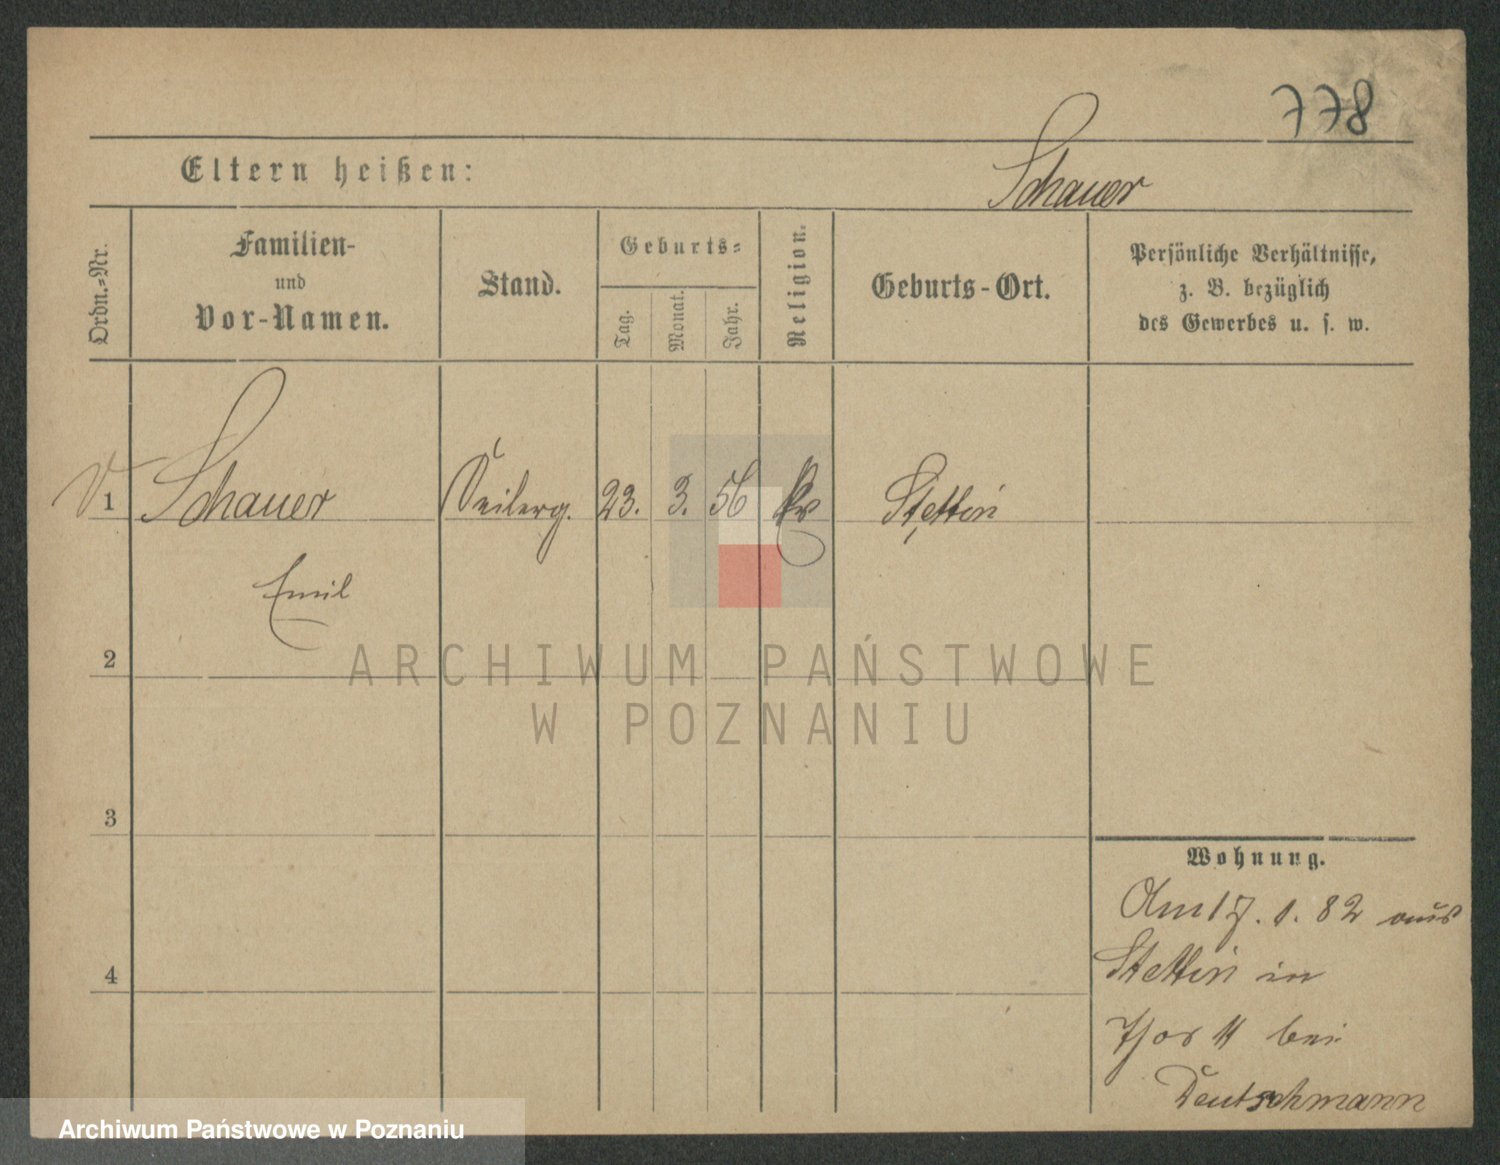 778
Eltern heißen: Schauer
Ordn.-Nr.
Familien-
und
Vor-Namen.
Stand.
Geburts-
Tag.
Monat.
Jahr.
Religion.
Geburts-Ort.
Persönliche Verhältnisse,
z. B. bezüglich
des Gewerbes u. s. w.
1 Schauer 23. 3. 56 Stettin
Emil
2
ARCHIWUM PAŃSTWOWE
W POZNANIU
3
Wohnung.
Am 17. 1. 82 aus
Stettin in
4
bei
Deutschmann
Archiwum Państwowe w Poznaniu